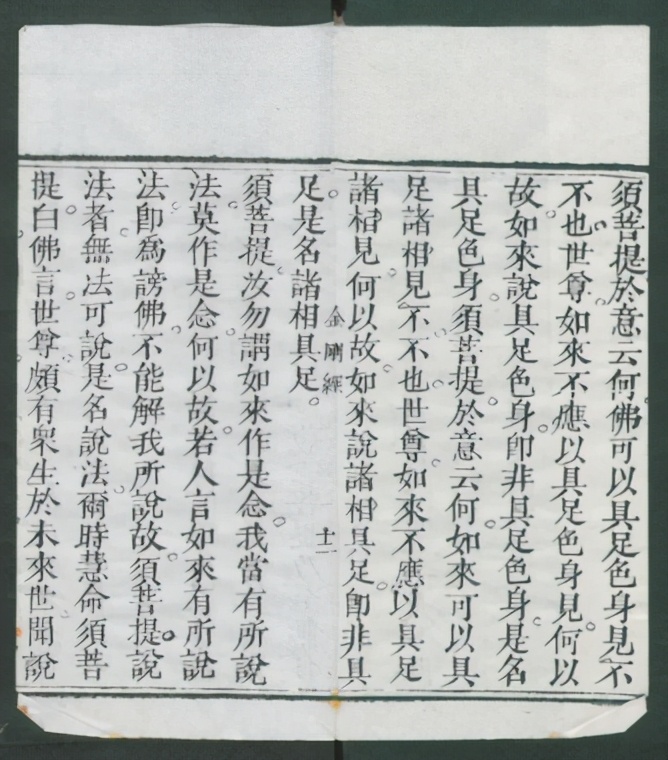 須菩提於意云何佛可以具足色身見不
不也世尊如來不應以具足色身見何以
故如來說具足色身卽非具足色身是名
具足色身須菩提於意云何如來可以具
足諸相見不不也世尊如來不應以具足
諸相見何以故如來說諸相具足卽非具
足是名諸相具足
金剛經
十二
須菩提汝勿謂如來作是念我當有所說
法莫作是念何以故若人言如來有所說
法卽爲謗佛不能解我所說故須菩提說
法者無法可說是名說法爾時慧命須菩
提白佛言世尊頗有衆生於未來世聞說